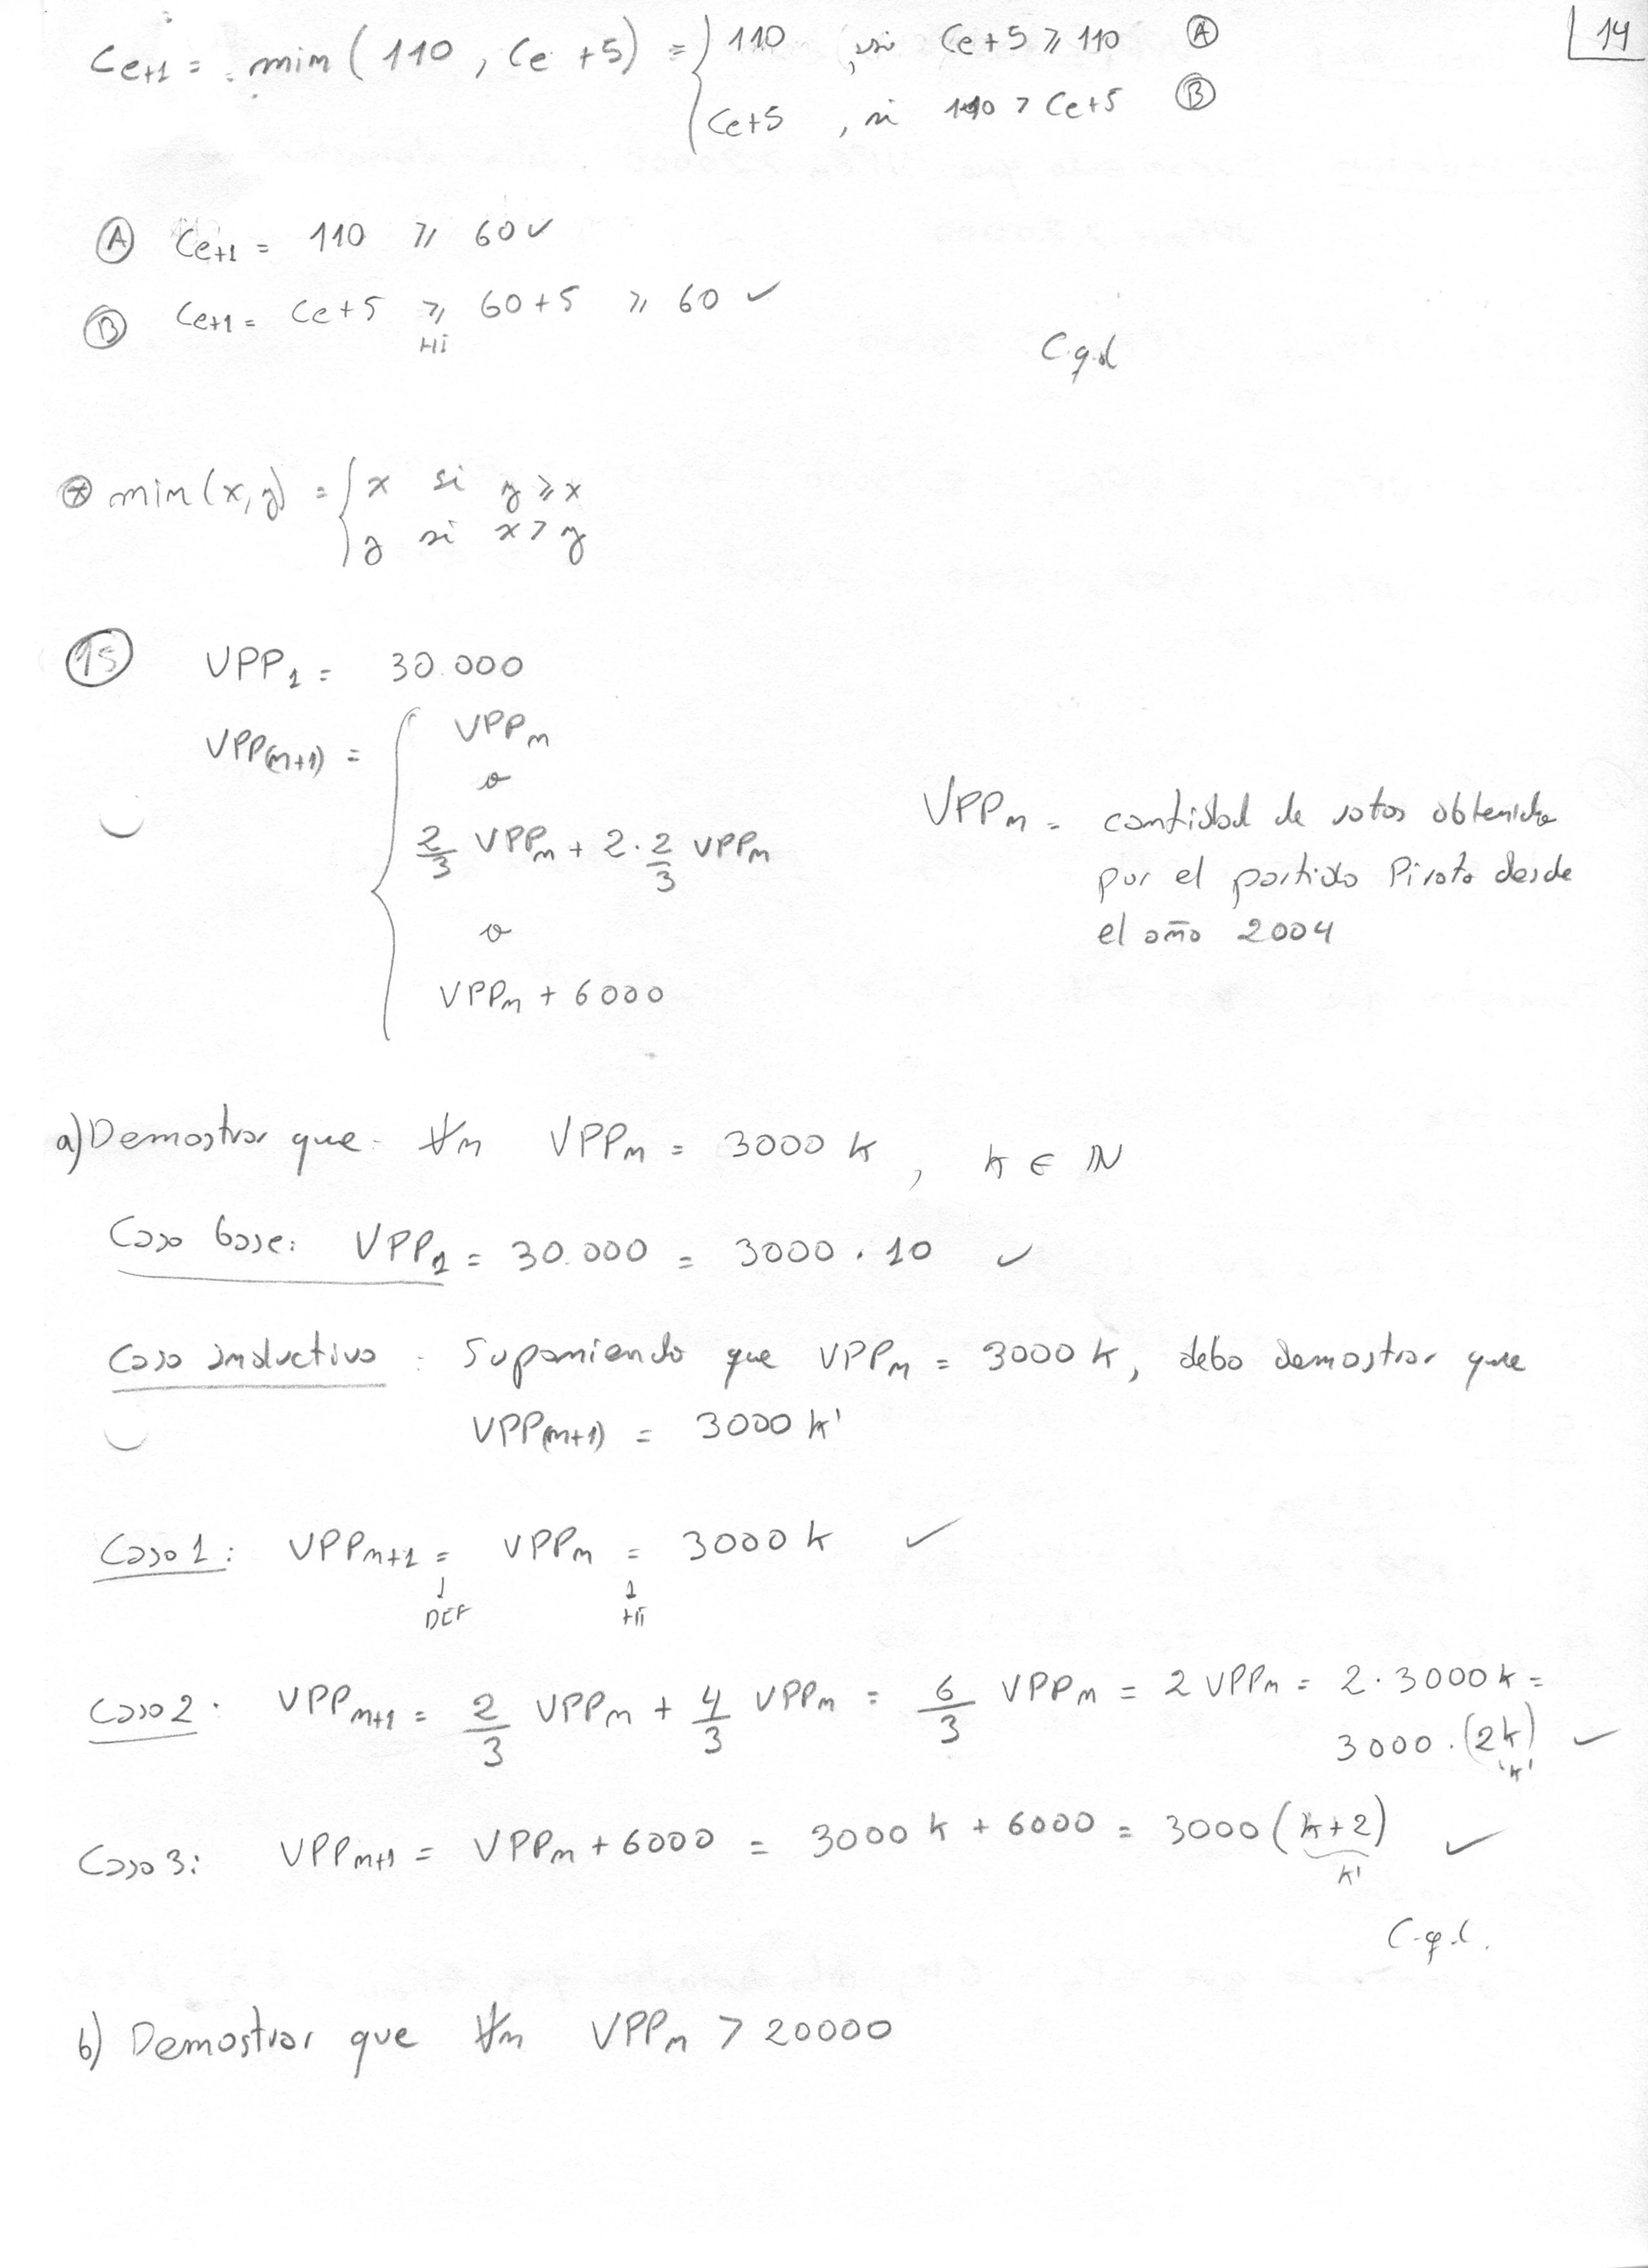 14
Ce+1 = min(110, Ce+5) = { 110 , si Ce+5 ⩾ 110 Ⓐ
Ce+5 , si 110 > Ce+5 Ⓑ
Ⓐ Ce+1 = 110 ⩾ 60 ✓
Ⓑ Ce+1 = Ce+5 ⩾ 60+5 ⩾ 60 ✓
Hi
C.q.d
⊛ min(x,y) = { x si y ⩾ x
y si x > y
⑮ VPP1 = 30.000
VPP(n+1) = { VPPn
o
2/3 VPPn + 2·2/3 VPPn
o
VPPn + 6000
VPPn = cantidad de votos obtenida
por el partido Pirata desde
el año 2004
a) Demostrar que ∀n VPPn = 3000 k , k ∈ IN
Caso base: VPP1 = 30.000 = 3000 · 10 ✓
Caso inductivo : Suponiendo que VPPn = 3000 k, debo demostrar que
VPP(n+1) = 3000 k'
Caso 1: VPPn+1 = VPPn = 3000 k ✓
↓ ↓
DEF Hi
Caso 2: VPPn+1 = 2/3 VPPn + 4/3 VPPn = 6/3 VPPn = 2 VPPn = 2·3000 k =
3000·(2k) ✓
k'
Caso 3: VPPn+1 = VPPn + 6000 = 3000 k + 6000 = 3000 (k+2) ✓
k'
b) Demostrar que ∀n VPPn > 20000